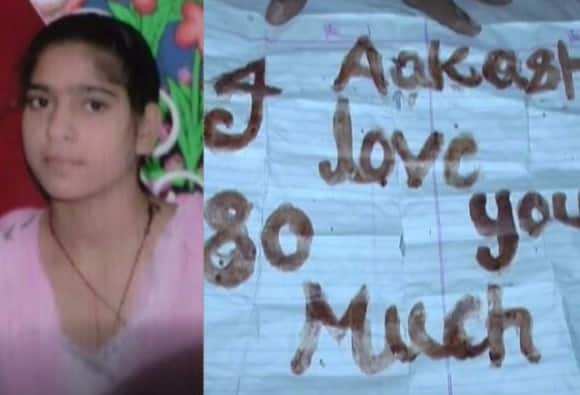 Aakash
I love
80 you
Much